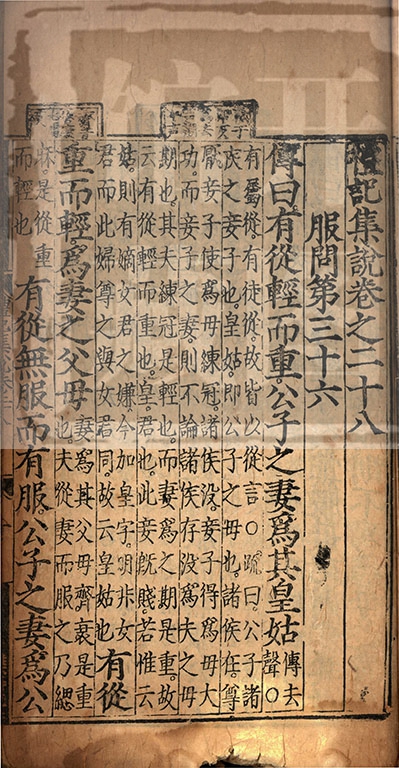 禮記集說卷之二十八
服問第三十六
傳曰有從輕而重公子之妻爲其皇姑傳去聲○
有屬從有徒從故皆以從言○疏曰公子諸
矦之妾子也皇姑即公子之母也諸矦在尊
厭妾子使爲母練冠諸矦没妾子得爲母大
功而妾子之妻則不論諸矦存没爲夫之母
期也其夫練冠是輕也而妻爲之期是重故
云有從輕而重也皇君也此妾旣賤若惟云
姑則有嫡女君之嫌今加皇字明非女
君而此婦尊之與女君同故云皇姑也
有從
重而輕爲妻之父母
妻爲其父母齊衰是重
也夫從妻而服之乃緦
麻是從重
而輕也
有從無服而有服公子之妻爲公